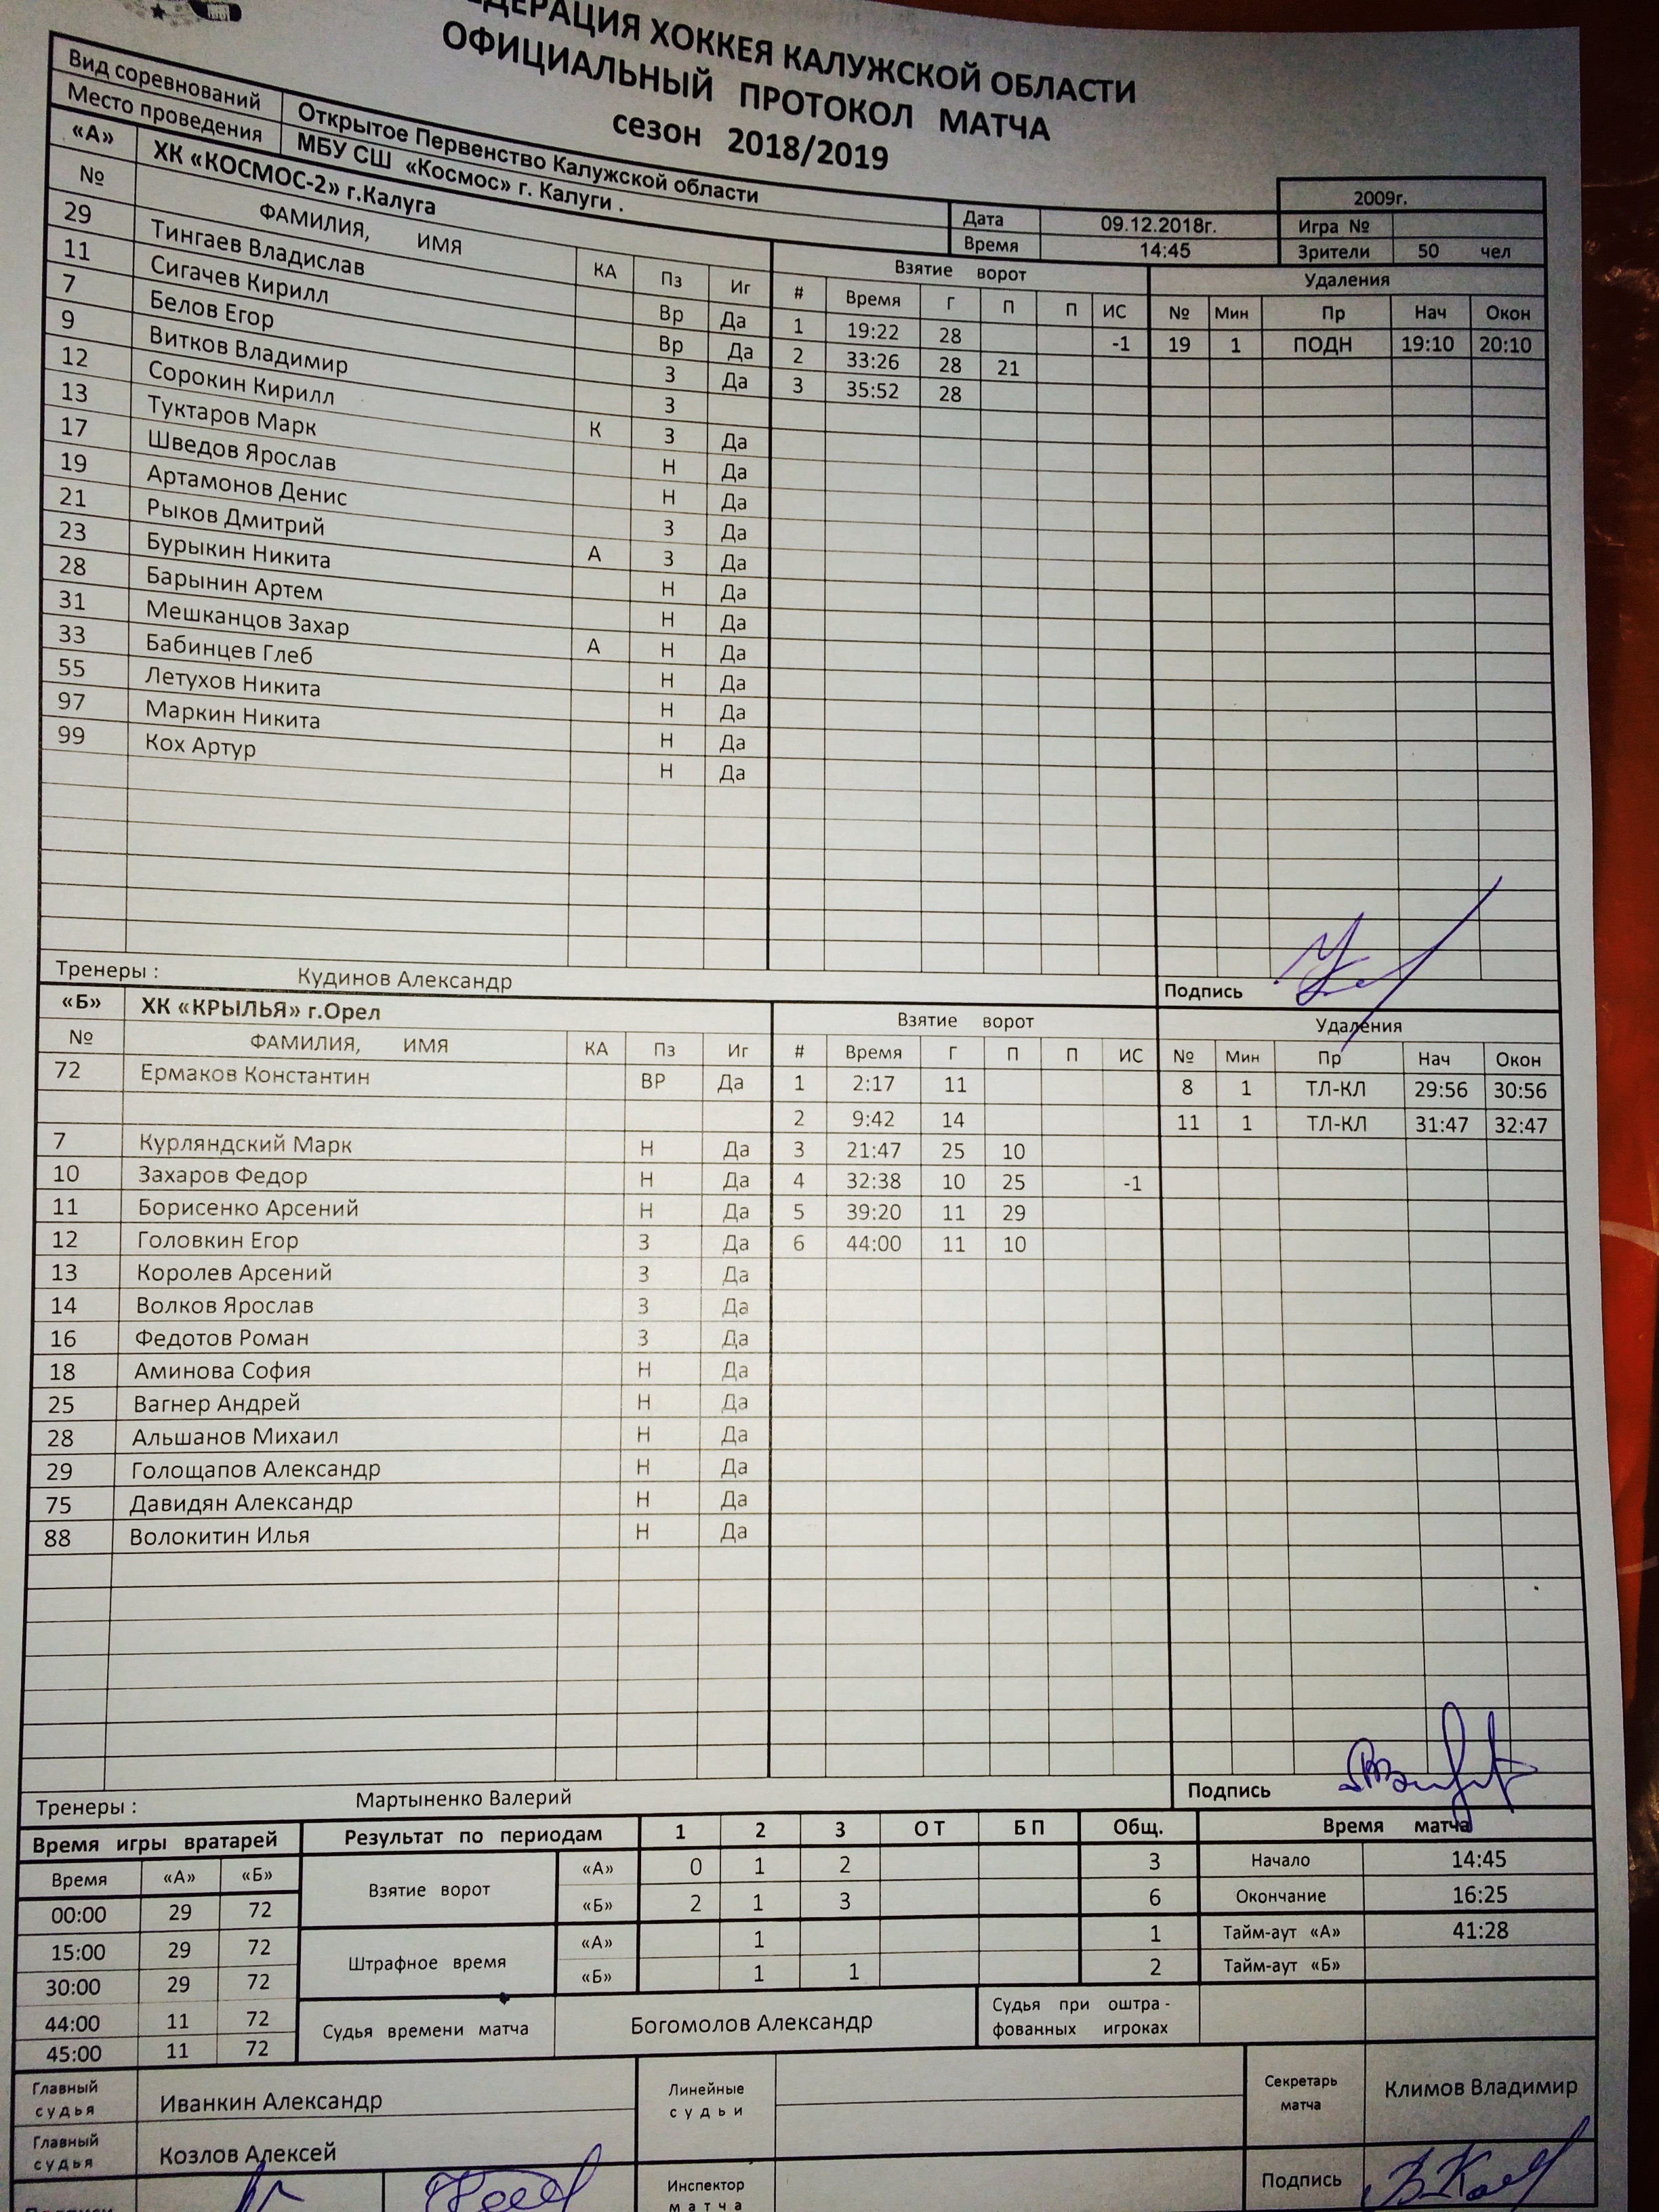 ФЕДЕРАЦИЯ ХОККЕЯ КАЛУЖСКОЙ ОБЛАСТИ
ОФИЦИАЛЬНЫЙ ПРОТОКОЛ МАТЧА
сезон 2018/2019
2009г.
Вид соревнований Открытое Первенство Калужской области Дата 09.12.2018г. Игра №
Место проведения МБУ СШ «Космос» г. Калуги . Время 14:45 Зрители 50 чел
«А» ХК «КОСМОС-2» г.Калуга Взятие ворот Удаления
№ ФАМИЛИЯ, ИМЯ КА Пз Иг # Время Г П П ИС № Мин Пр Нач Окон
29 Тингаев Владислав Вр Да 1 19:22 28 -1 19 1 ПОДН 19:10 20:10
11 Сигачев Кирилл Вр Да 2 33:26 28 21
7 Белов Егор З Да 3 35:52 28
9 Витков Владимир З
12 Сорокин Кирилл К З Да
13 Туктаров Марк Н Да
17 Шведов Ярослав Н Да
19 Артамонов Денис З Да
21 Рыков Дмитрий А З Да
23 Бурыкин Никита Н Да
28 Барынин Артем Н Да
31 Мешканцов Захар А Н Да
33 Бабинцев Глеб Н Да
55 Летухов Никита Н Да
97 Маркин Никита Н Да
99 Кох Артур Н Да
Тренеры : Кудинов Александр Подпись
«Б» ХК «КРЫЛЬЯ» г.Орел Взятие ворот Удаления
№ ФАМИЛИЯ, ИМЯ КА Пз Иг # Время Г П П ИС № Мин Пр Нач Окон
72 Ермаков Константин ВР Да 1 2:17 11 8 1 ТЛ-КЛ 29:56 30:56
2 9:42 14 11 1 ТЛ-КЛ 31:47 32:47
7 Курляндский Марк Н Да 3 21:47 25 10
10 Захаров Федор Н Да 4 32:38 10 25 -1
11 Борисенко Арсений Н Да 5 39:20 11 29
12 Головкин Егор З Да 6 44:00 11 10
13 Королев Арсений З Да
14 Волков Ярослав З Да
16 Федотов Роман З Да
18 Аминова София Н Да
25 Вагнер Андрей Н Да
28 Альшанов Михаил Н Да
29 Голощапов Александр Н Да
75 Давидян Александр Н Да
88 Волокитин Илья Н Да
Тренеры : Мартыненко Валерий Подпись
Время игры вратарей Результат по периодам 1 2 3 О Т Б П Общ. Время матча
Время «А» «Б» Взятие ворот «А» 0 1 2 3 Начало 14:45
00:00 29 72 «Б» 2 1 3 6 Окончание 16:25
15:00 29 72 Штрафное время «А» 1 1 Тайм-аут «А» 41:28
30:00 29 72 «Б» 1 1 2 Тайм-аут «Б»
44:00 11 72 Судья времени матча Богомолов Александр Судья при оштра -
45:00 11 72 фованных игроках
Главный судья Иванкин Александр Линейные судьи Секретарь матча Климов Владимир
Главный судья Козлов Алексей Инспектор матча Подпись